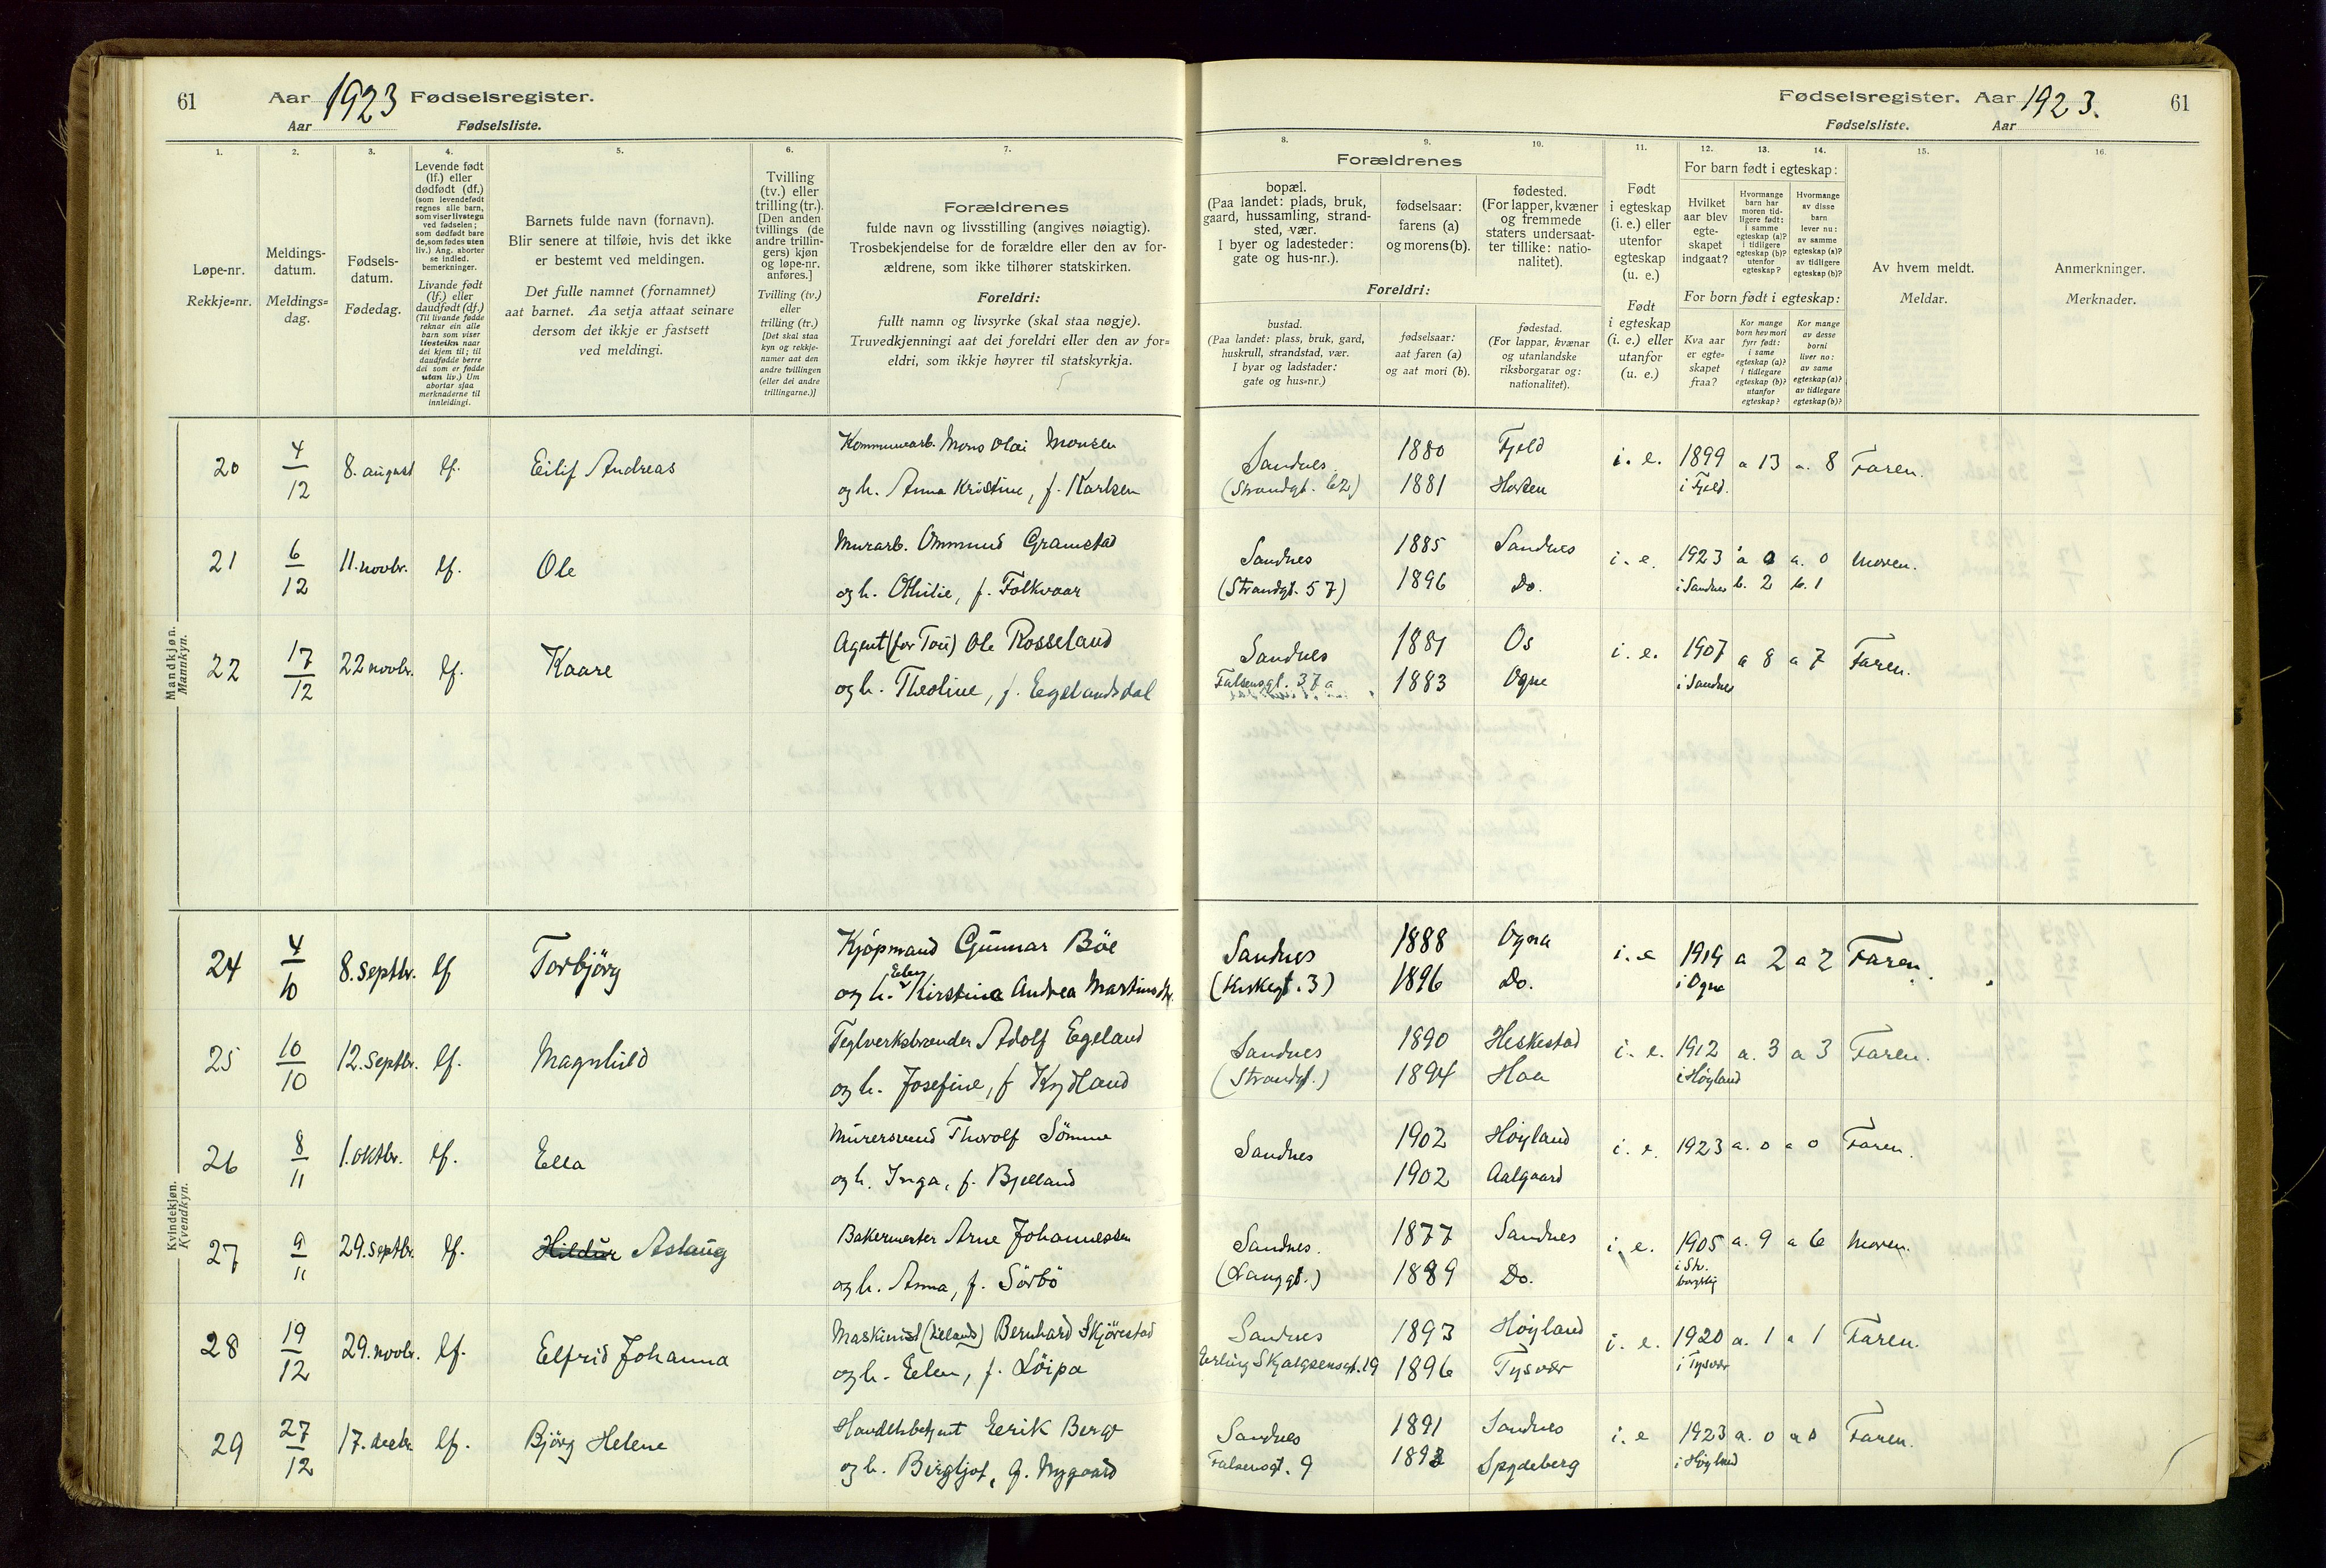 61 Aar 1923 Fødselsregister.
Aar Fødselsliste.
Fødselsregister. Aar 1923. 61
Fødselsliste. Aar
1. 2. 3. 4. 5. 6. 7.
8. 9. 10. 11. 12. 13. 14. 15. 16.
Løpe-nr.
Rekkje=nr.
Meldings-
datum.
Meldings=
dag.
Fødsels-
datum.
Fødedag.
Levende født
(lf.) eller
dødfødt (df.)
(som levendefødt
regnes alle barn,
som viser livstegn
ved fødselen;
som dødfødt bare
de, som fødes uten
liv.) Ang. aborter
se indled.
bemerkninger.
Livande født
(lf.) eller
daudfødt (df.)
(Til livande fødde
reknar ein alle
barn som viser
livsteikn naar
dei kjem til; til
daudfødde berre
dei som er fødde
utan liv.) Um
abortar sjaa
merknaderne til
innleidingi.
Barnets fulde navn (fornavn).
Blir senere at tilføie, hvis det ikke
er bestemt ved meldingen.
Det fulle namnet (fornamnet)
aat barnet. Aa setja attaat seinare
dersom det ikkje er fastsett
ved meldingi.
Tvilling
(tv.) eller
trilling (tr.).
[Den anden
tvillings (de
andre trillin-
gers) kjøn
og løpe-nr.
anføres.]
Tvilling (tv.)
eller
trilling (tr.)
[Det skal staa
kyn og rekkje-
numer aat den
andre tvillingen
(eller dei andre
trillingarne.)]
Forældrenes
fulde navn og livsstilling (angives nøiagtig).
Trosbekjendelse for de forældre eller den av for-
ældrene, som ikke tilhører statskirken.
Foreldri:
fullt namn og livsyrke (skal staa nøgje).
Truvedkjenningi aat dei foreldri eller den av for=
eldri, som ikkje høyrer til statskyrkja.
Forældrenes
bopæl.
(Paa landet: plads, bruk,
gaard, hussamling, strand-
sted, vær.
I byer og ladesteder:
gate og hus-nr.).
fødselsaar:
farens (a)
og morens (b).
fødested.
(For lapper, kvæner
og fremmede
staters undersaat-
ter tillike: natio-
nalitet).
Foreldri:
bustad.
(Paa landet: plass, bruk, gard,
huskrull, strandstad, vær.
I byar og ladstader:
gate og hus=nr.)
fødselsaar:
aat faren (a)
og aat mori (b).
fødestad.
(For lappar, kvænar
og utanlandske
riksborgarar og:
nationalitet).
Født
i egteskap
(i. e.) eller
utenfor
egteskap
(u. e.)
Født
i egteskap
(i. e.) eller
utanfor
(u. e.)
For barn født i egteskap:
Hvilket
aar blev
egte-
skapet
indgaat?
Hvormange
barn har
moren tid-
ligere født:
i samme
egteskap (a)?
i tidligere
egteskap (b)?
utenfor
egteskap?
Hvormange
av disse
barn
lever nu:
av samme
egteskap (a)?
av tidligere
egteskap (b)?
For born født i egteskap:
Kva aar
er egte-
skapet
fraa?
Kor mange
born hev mori
fyrr født:
i same
egteskap (a)?
i tidlegare
egteskap (b)?
utanfor
egteskap?
Kor mange
av desse
borni
liver no:
av same
egteskap (a)?
av tidlegare
egteskap (b)?
Av hvem meldt.
Meldar.
Anmerkninger.
Merknader.
Mandkjøn.
Mannkyn.
20 4/12 8. august lf. Eilif Andreas Kommunearb. Mons Olai Monsen Sandnes 1880 Fjeld i. e. 1899 a 13 a. 8 Faren.
og h. Anna Kristine, f. Karlsen (Strandgt. 62) 1881 i Fjeld.
21 6/12 11. novbr. lf. Ole Murarb. Ommund Gramstad Sandnes 1885 Sandnes i. e. 1923 a 0 a. 0 Moren.
og h. Othilie, f. Folkvoar (Strandgt. 57) 1896 Do. i Sandnes b. 2 b. 1
22 17/12 22 novbr. lf. Kaare Agent (for Tou) Ole Rosseland Sandnes 1881 Os i. e. 1907 a 8 a 7 Faren.
og h. Theoline, f. Eegelandsdal Falsensgt. 37a 1883 Ogne i Sandnes
Kvindekjøn.
Kvendkyn.
24 4/10 8. septbr. lf Torbjörg Kjöpmand Gunnar Böe Sandnes 1888 Ogna i. e 1919 a 2 a 2 Faren.
og h. Kirstine Andrea (Kirkegt. 3) 1896 Do. i Ogne
25 10/10 12. septbr. lf. Magnhild Teglverksbrænder Adolf Egeland Sandnes 1890 Heskestad i. e. 1912 a. 3 a 3 Faren.
og h. Josefine, f Kydland (Strandgt.) 1894 Haa i Höyland
26 8/11 1. oktbr. lf. Ella Murersvend Thorolf Sömme Sandnes 1902 Höyland i. e. 1923 a. 0 a 0 Faren.
og h. Inga, f. Bjelland 1902 Aalgaard
27 9/11 29. septbr. lf. Hildur Aslaug Bakermester Arne Johannessen Sandnes. 1877 Sandnes i. e. 1905 a. 9 a 6 Moren.
og h. Anna, f. Sörbö (Langgt.) 1889 Do. i Sh. borgklig
28 19/12 29. novbr. lf. Elfrid Johanna Maskinist Bernhard Skjörestad Sandnes 1893 Höyland i. e. 1920 a. 1 a 1 Faren.
og h. Elen, f. Löipa Erling Skjalgsensgt. 19 1896 Tysvær i Tysvær
29 27/12 17. decbr. lf. Björg Helene Handelsbetjent Eerik Berge Sandnes 1891 Sandnes i. e 1923 a. 0 a 0 Faren.
og h. Bergljot, Nygaard Falsensgt. 9 Spydeberg i Höyland